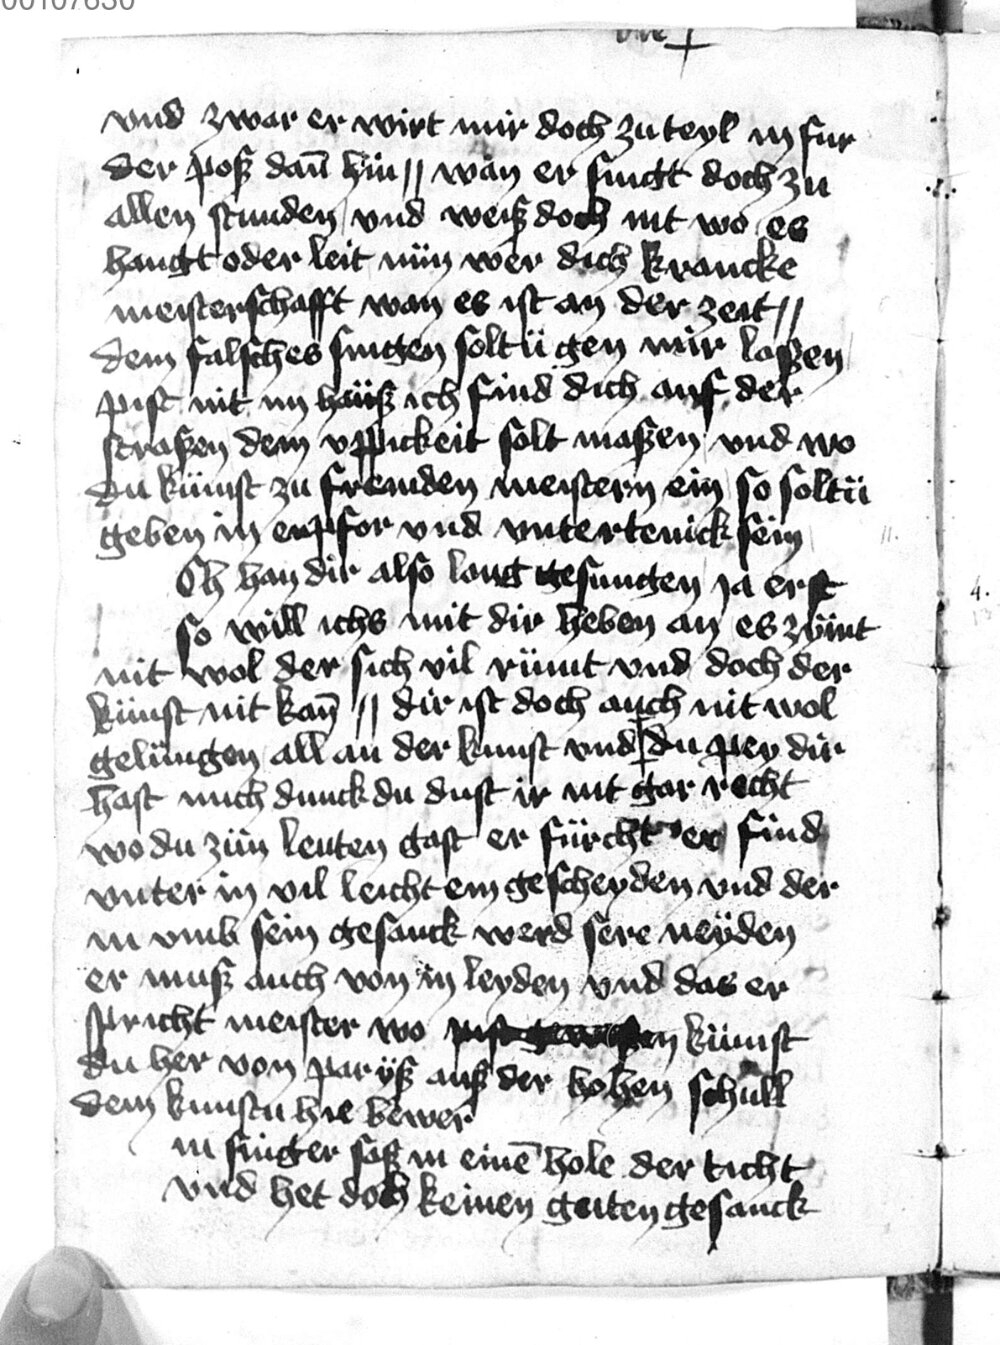 00107630
vnd zwar er wirt mir doch zu teyl in fur
der poß dañ hin // wan er singt doch zu
allen stunden vnd weiß doch nit wo es
hangt oder leit nün wer dich krancke
meisterschafft wan es ist an der zeit //
dein falsches singen soltü gen mir laßen
pist nit im hauß ich find dich auf der
straßen dein vppickeit solt maßen vnd wo
du kümst zu fremden meistern ein so soltü
geben in enpfor vnd vntertenick sein
Ch han dir also lang gesungen ja erst
so will ichs mit dir heben an es zÿmt
nit wol der sich vil rümt vnd doch der
künst nit kañ // dir ist doch auch nit wol
gelüngen all an der kunst vnd du pey dir
hast mich dunck du dust ir nit gar recht
wo du zün leuten gast er fürcht er find
vnter in vil leicht ein gescheyden vnd der
in vmb sein gesanck werd sere neÿden
er muß auch von in leyden vnd das er
spricht meister wo kümst
du her von parÿß auß der hohen schull
dein kunst hie bewer
in singer saß in einē hole der ticht
vnd het doch keinen guten gesanck